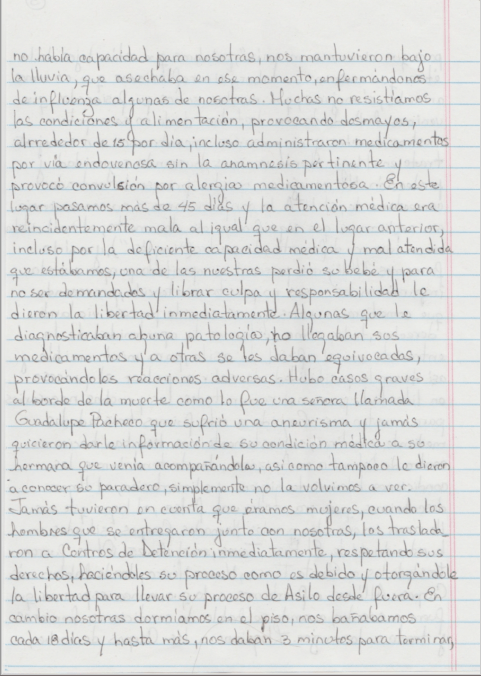 no había capacidad para nosotras, nos mantuvieron bajo
la lluvia, que asechaba en ese momento, enfermándonos
de influenza algunas de nosotras. Muchas no resistíamos
las condiciones y alimentación, provocando desmayos,
alrrededor de 15 por día, incluso administraron medicamentos
por vía endovenosa sin la anamnesis pertinente y
provocó convulsión por alergia medicamentosa. En este
lugar pasamos más de 45 días y la atención médica era
reincidentemente mala al igual que en el lugar anterior,
incluso por la deficiente capacidad médica y mal atendida
que estábamos, una de las nuestras perdió su bebé y para
no ser demandados y librar culpa y responsabilidad le
dieron la libertad inmediatamente. Algunas que le
diagnosticaban alguna patología, no llegaban sus
medicamentos y a otras se les daban equivocadas,
provocándoles reacciones adversas. Hubo casos graves
al borde de la muerte como lo fue una señora llamada
Guadalupe Pacheco que sufrió una aneurisma y jamás
quicieron darle información de su condición médica a su
hermana que venía acompañándola, asi como tampoco le dieron
a conocer su paradero, simplemente no la volvimos a ver.
Jamás tuvieron en cuenta que éramos mujeres, cuando los
hombres que se entregaron junto con nosotras, los traslada
ron a Centros de Detención inmediatamente, respetando sus
derechos, haciéndoles su proceso como es debido y otorgándole
la libertad para llevar su proceso de Asilo desde fuera. En
cambio nosotras dormíamos en el piso, nos bañabamos
cada 18 días y hasta más, nos daban 3 minutos para terminar,